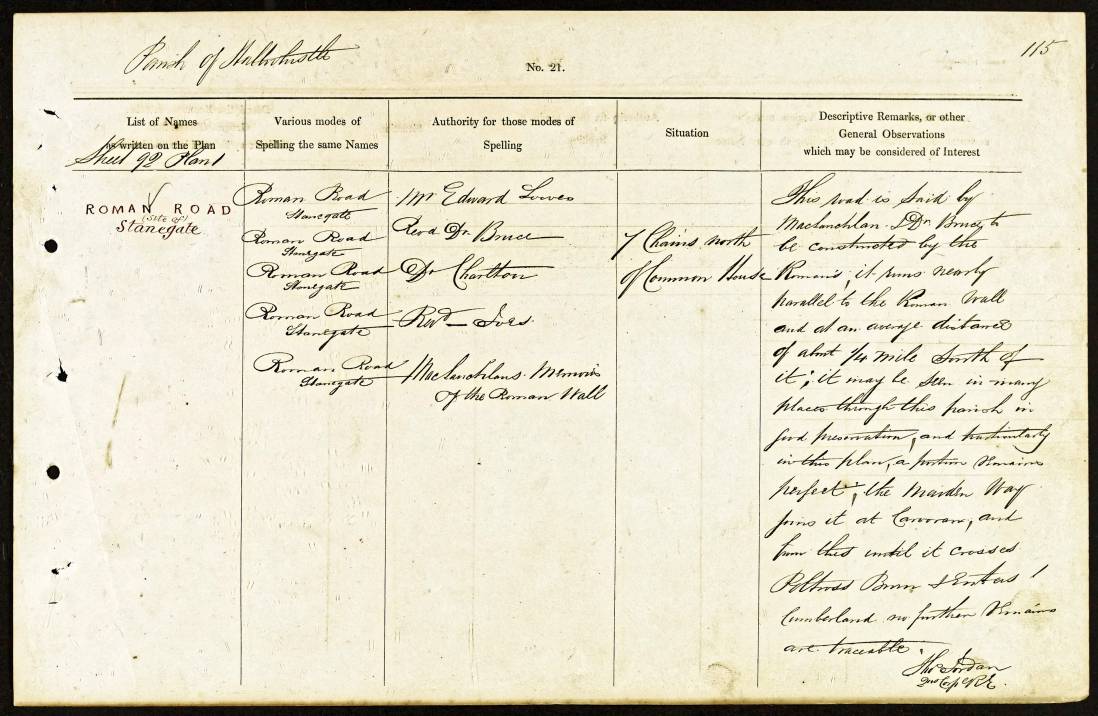 Parish of Haltwhistle
No. 21.
115
List of Names
as written on the Plan
Various modes of
Spelling the same Names
Authority for those modes of
Spelling
Situation
Descriptive Remarks, or other
General Observations
which may be considered of Interest
Sheet 92 Plan 1
ROMAN ROAD
(Site of)
Stanegate
Roman Road
Stanegate
Roman Road
Stanegate
Roman Road
Stanegate
Roman Road
Stanegate
Roman Road
Stanegate
Mr Edward Lowes
Revd Dr. Bruce
Dr Charlton
Revd — Ives
Maclauchlans Memoirs
of the Roman Wall
7 Chains north
of Common House
This road is said by
Maclauchlan & Dr. Bruce to
be constructed by the
Romans; it runs nearly
parallel to the Roman Wall
and at an average distance
of about 1/4 mile South of
it; it may be seen in many
places through this parish in
good preservation, and particularly
in this plan, a portion remains
perfect; the Maiden Way
joins it at Carvoran, and
from this until it crosses
Poltross Burn & Enters
Cumberland no further remains
are traceable.
Thos Jordan
2nd Corpl R.E.